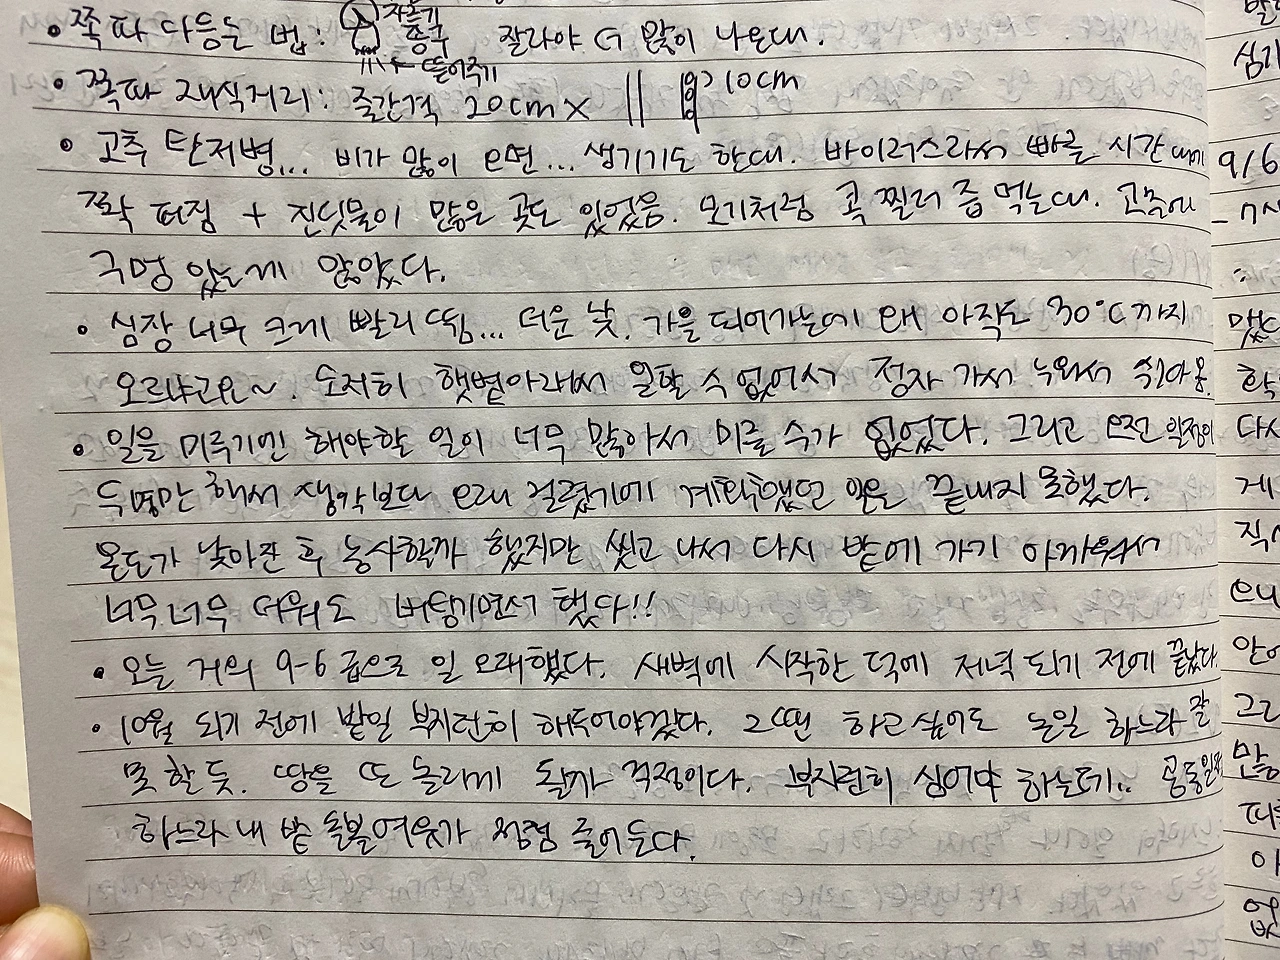 • 쪽파 다듬는 법: 자르기 종구 잘라야 더 많이 나온대.
뜯어주기
• 쪽파 재식거리: 줄간격 20cm x 10cm
• 고추 탄저병... 비가 많이 오면... 생기기도 한대. 바이러스라서 빠른 시간 내에
쫙 퍼짐 + 진딧물이 많은 곳도 있었음. 모기처럼 콕 찔러 즙 먹는대. 고추에
구멍 있는게 많았다.
• 심장 너무 크게 빨리 뜀... 더운 낮. 가을 되어가는데 왜 아직도 30℃까지
오르냐고요~. 도저히 햇볕아래서 일할 수 없어서 정자 가서 누워서 쉬다 옴.
• 일을 미루기엔 해야할 일이 너무 많아서 미룰 수가 없었다. 그리고 오전 일정이
두명만 해서 생각보다 오래 걸렸기에 계획했던 일은 끝내지 못했다.
온도가 낮아진 후 농사할까 했지만 씻고 나서 다시 밭에 가기 아까워서
너무너무 더워도 버팅기면서 했다!!
• 오늘 거의 9-6 급으로 일 오래했다. 새벽에 시작한 덕에 저녁 되기 전에 끝났다.
• 10월 되기 전에 밭일 부지런히 해두어야겠다. 그땐 하고 싶어도 논일 하느라 잘
못 할 듯. 땅을 또 놀리게 될까 걱정이다. 부지런히 심어야 하는데.. 공동일정
하느라 내 밭 돌볼 여유가 점점 줄어든다.
심기
9/6
다시